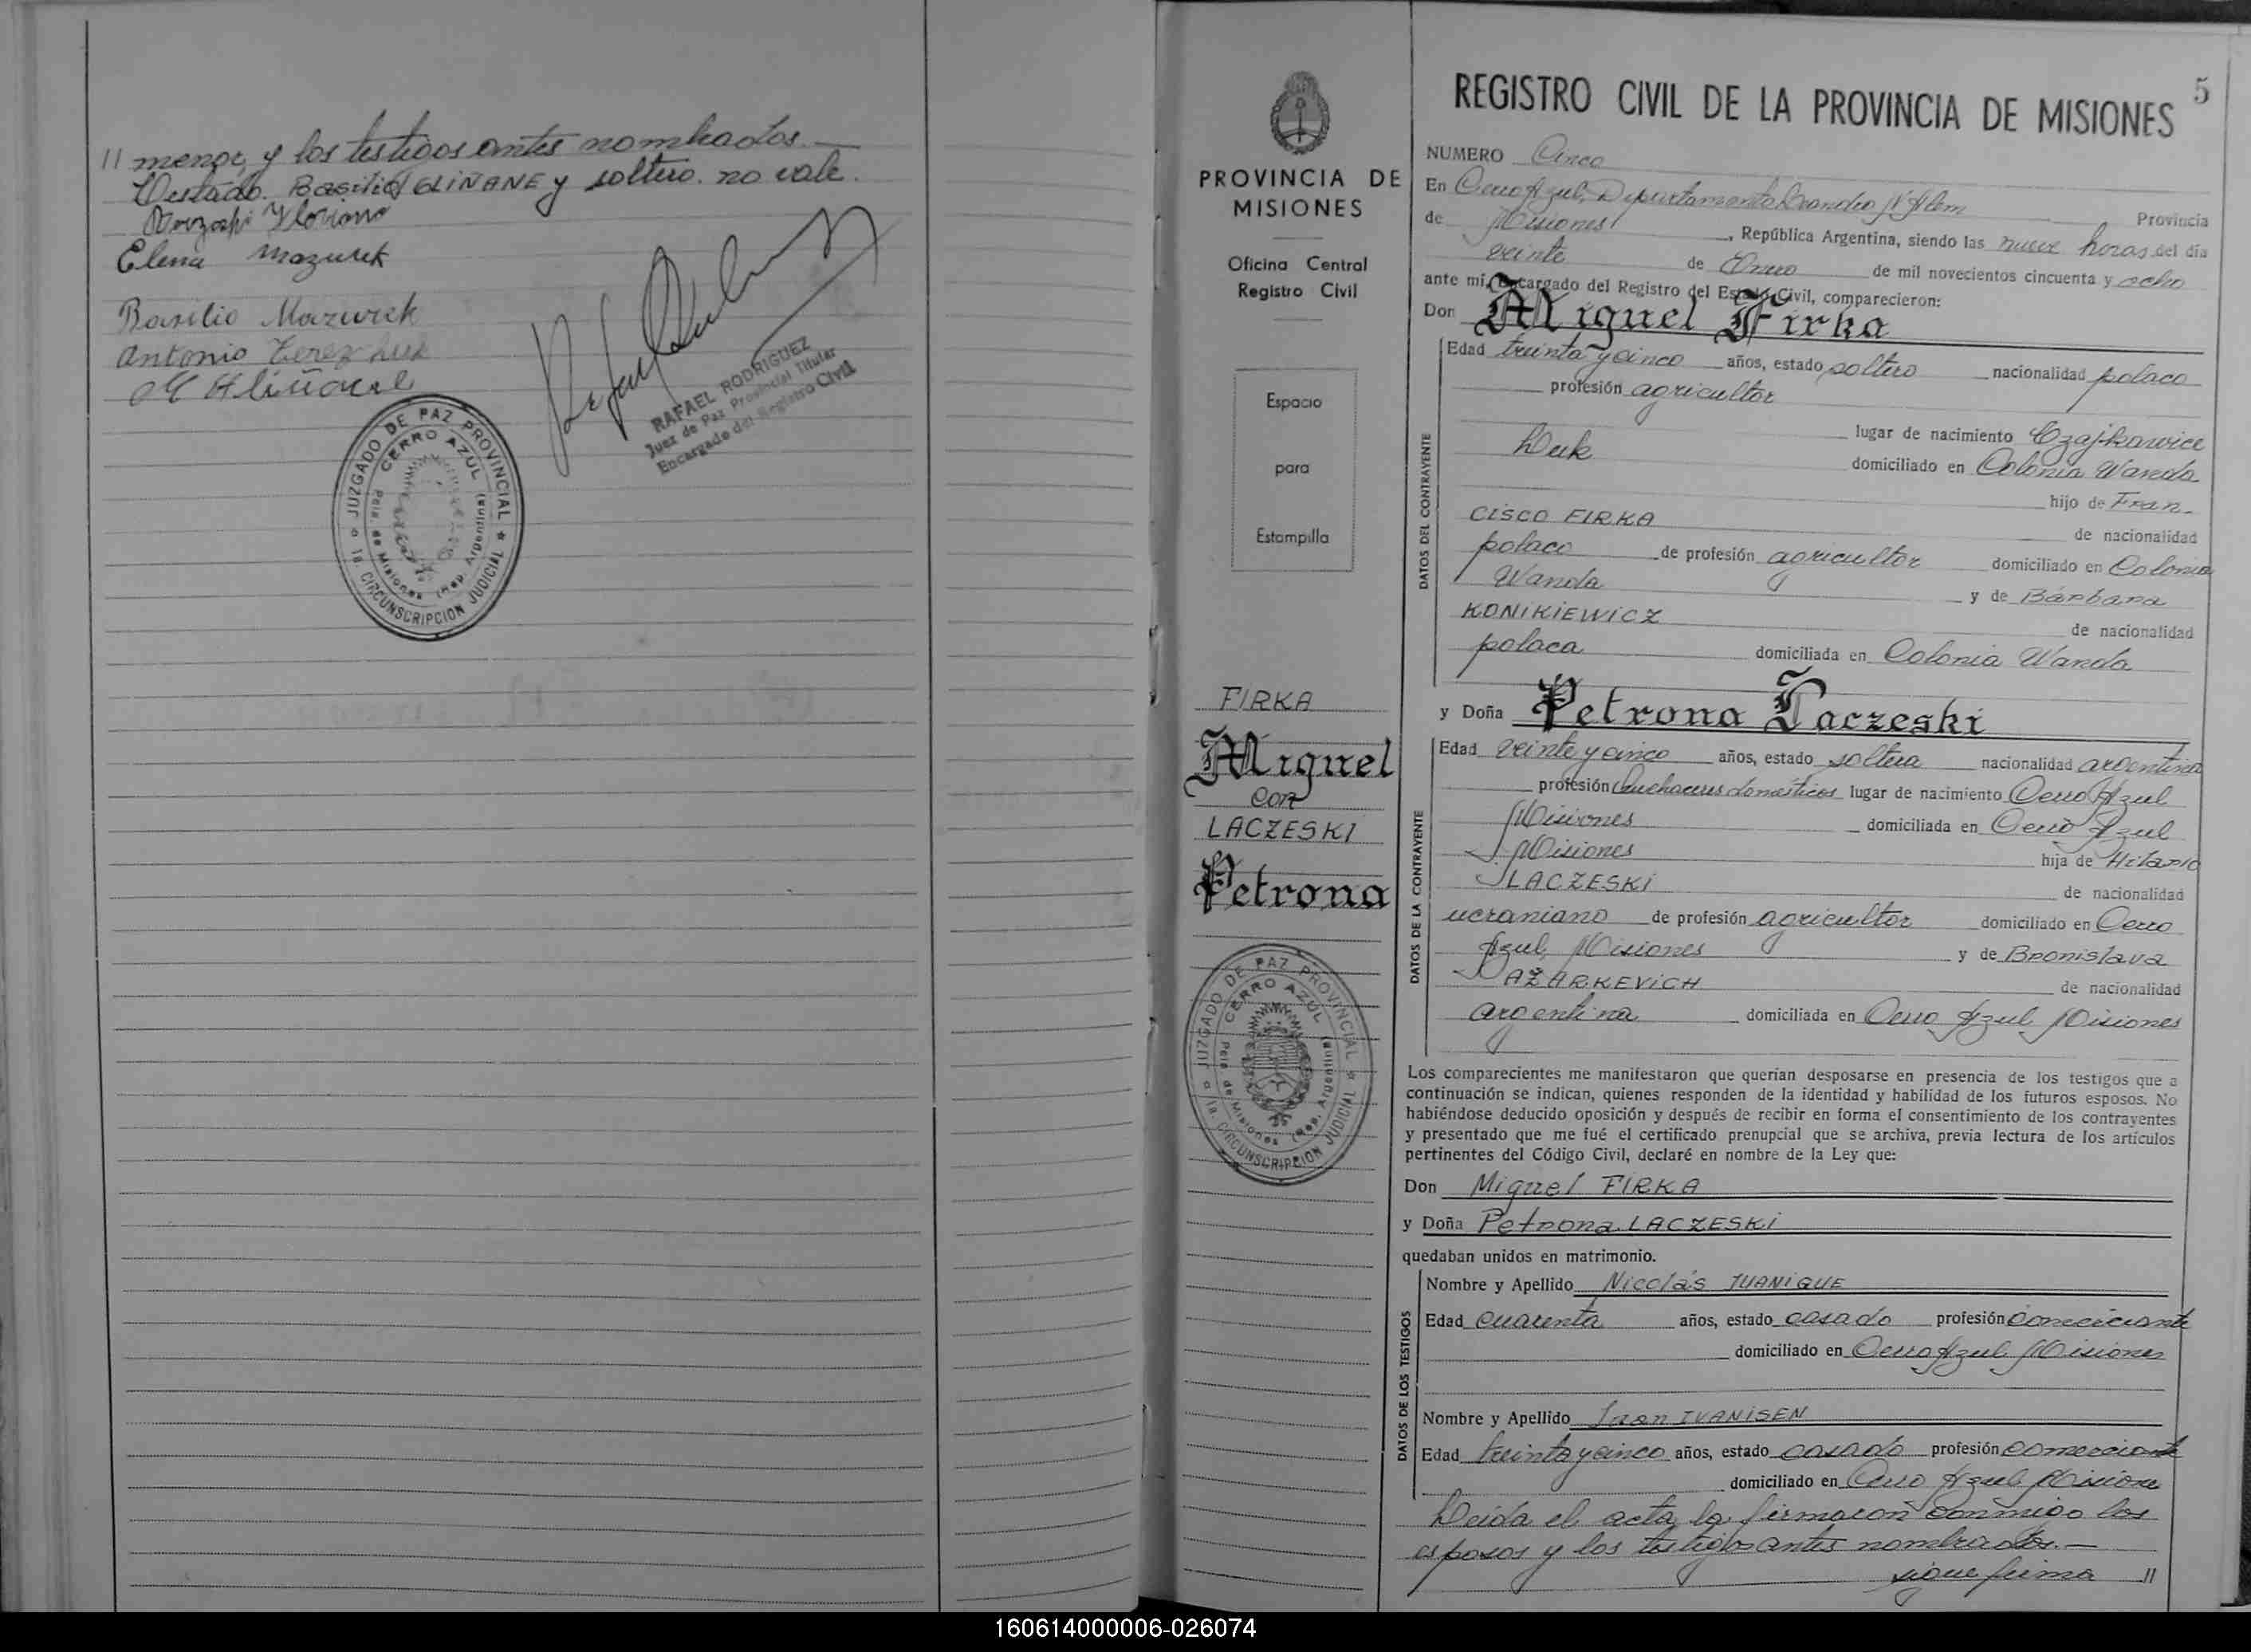 // menor, y los testigos antes nombrados.—
Testado. Basilio GLIÑANE y soltero. no vale.
Floriano
Elena Mazurek
Basilio Mazurek
Antonio
RAFAEL RODRIGUEZ
Juez de Paz Provincial Titular
Encargado del Registro Civil
JUZGADO DE PAZ PROVINCIAL
CERRO AZUL
Pcia. de Misiones (Rep. Argentina)
1a. CIRCUNSCRIPCION JUDICIAL
PROVINCIA DE
MISIONES
Oficina Central
Registro Civil
Espacio
para
Estampilla
FIRKA
Miguel
con
LACZESKI
Petrona
JUZGADO DE PAZ PROVINCIAL
CERRO AZUL
Pcia. de Misiones (Rep. Argentina)
1a. CIRCUNSCRIPCION JUDICIAL
5
REGISTRO CIVIL DE LA PROVINCIA DE MISIONES
NUMERO Cinco
En Cerro Azul, Departamento Leandro N Alem Provincia
de Misiones, República Argentina, siendo las nueve horas del día
veinte de Enero de mil novecientos cincuenta y ocho
ante mí, Encargado del Registro del Estado Civil, comparecieron:
Don Miguel Firka
DATOS DEL CONTRAYENTE
Edad treinta y cinco años, estado soltero nacionalidad polaco
profesión agricultor
lugar de nacimiento Czajkowice
domiciliado en Colonia Wanda
hijo de Fran-
CISCO FIRKA de nacionalidad
polaco de profesión agricultor domiciliado en Colonia
Wanda y de Bárbara
KONIKIEWICZ de nacionalidad
polaca domiciliada en Colonia Wanda
y Doña Petrona Laczeski
DATOS DE LA CONTRAYENTE
Edad veinte y cinco años, estado soltera nacionalidad argentina
profesión Quehaceres domésticos lugar de nacimiento Cerro Azul
Misiones domiciliada en Cerro Azul
Misiones hija de Hilario
LACZESKI de nacionalidad
ucraniano de profesión agricultor domiciliado en Cerro
Azul, Misiones y de Bronislava
NAZARKEVICH de nacionalidad
argentina domiciliada en Cerro Azul, Misiones
Los comparecientes me manifestaron que querían desposarse en presencia de los testigos que a
continuación se indican, quienes responden de la identidad y habilidad de los futuros esposos. No
habiéndose deducido oposición y después de recibir en forma el consentimiento de los contrayentes
y presentado que me fué el certificado prenupcial que se archiva, previa lectura de los artículos
pertinentes del Código Civil, declaré en nombre de la Ley que:
Don Miguel FIRKA
y Doña Petrona LACZESKI
quedaban unidos en matrimonio.
DATOS DE LOS TESTIGOS
Nombre y Apellido Nicolás JUANIQUE
Edad cuarenta años, estado casado profesión comerciante
domiciliado en Cerro Azul, Misiones
Nombre y Apellido Juan IVANISEN
Edad treinta y cinco años, estado casado profesión comerciante
domiciliado en Cerro Azul, Misiones
Leída el acta, la firmaron conmigo los
esposos y los testigos antes nombrados.—
sigue firma //
160614000006-026074